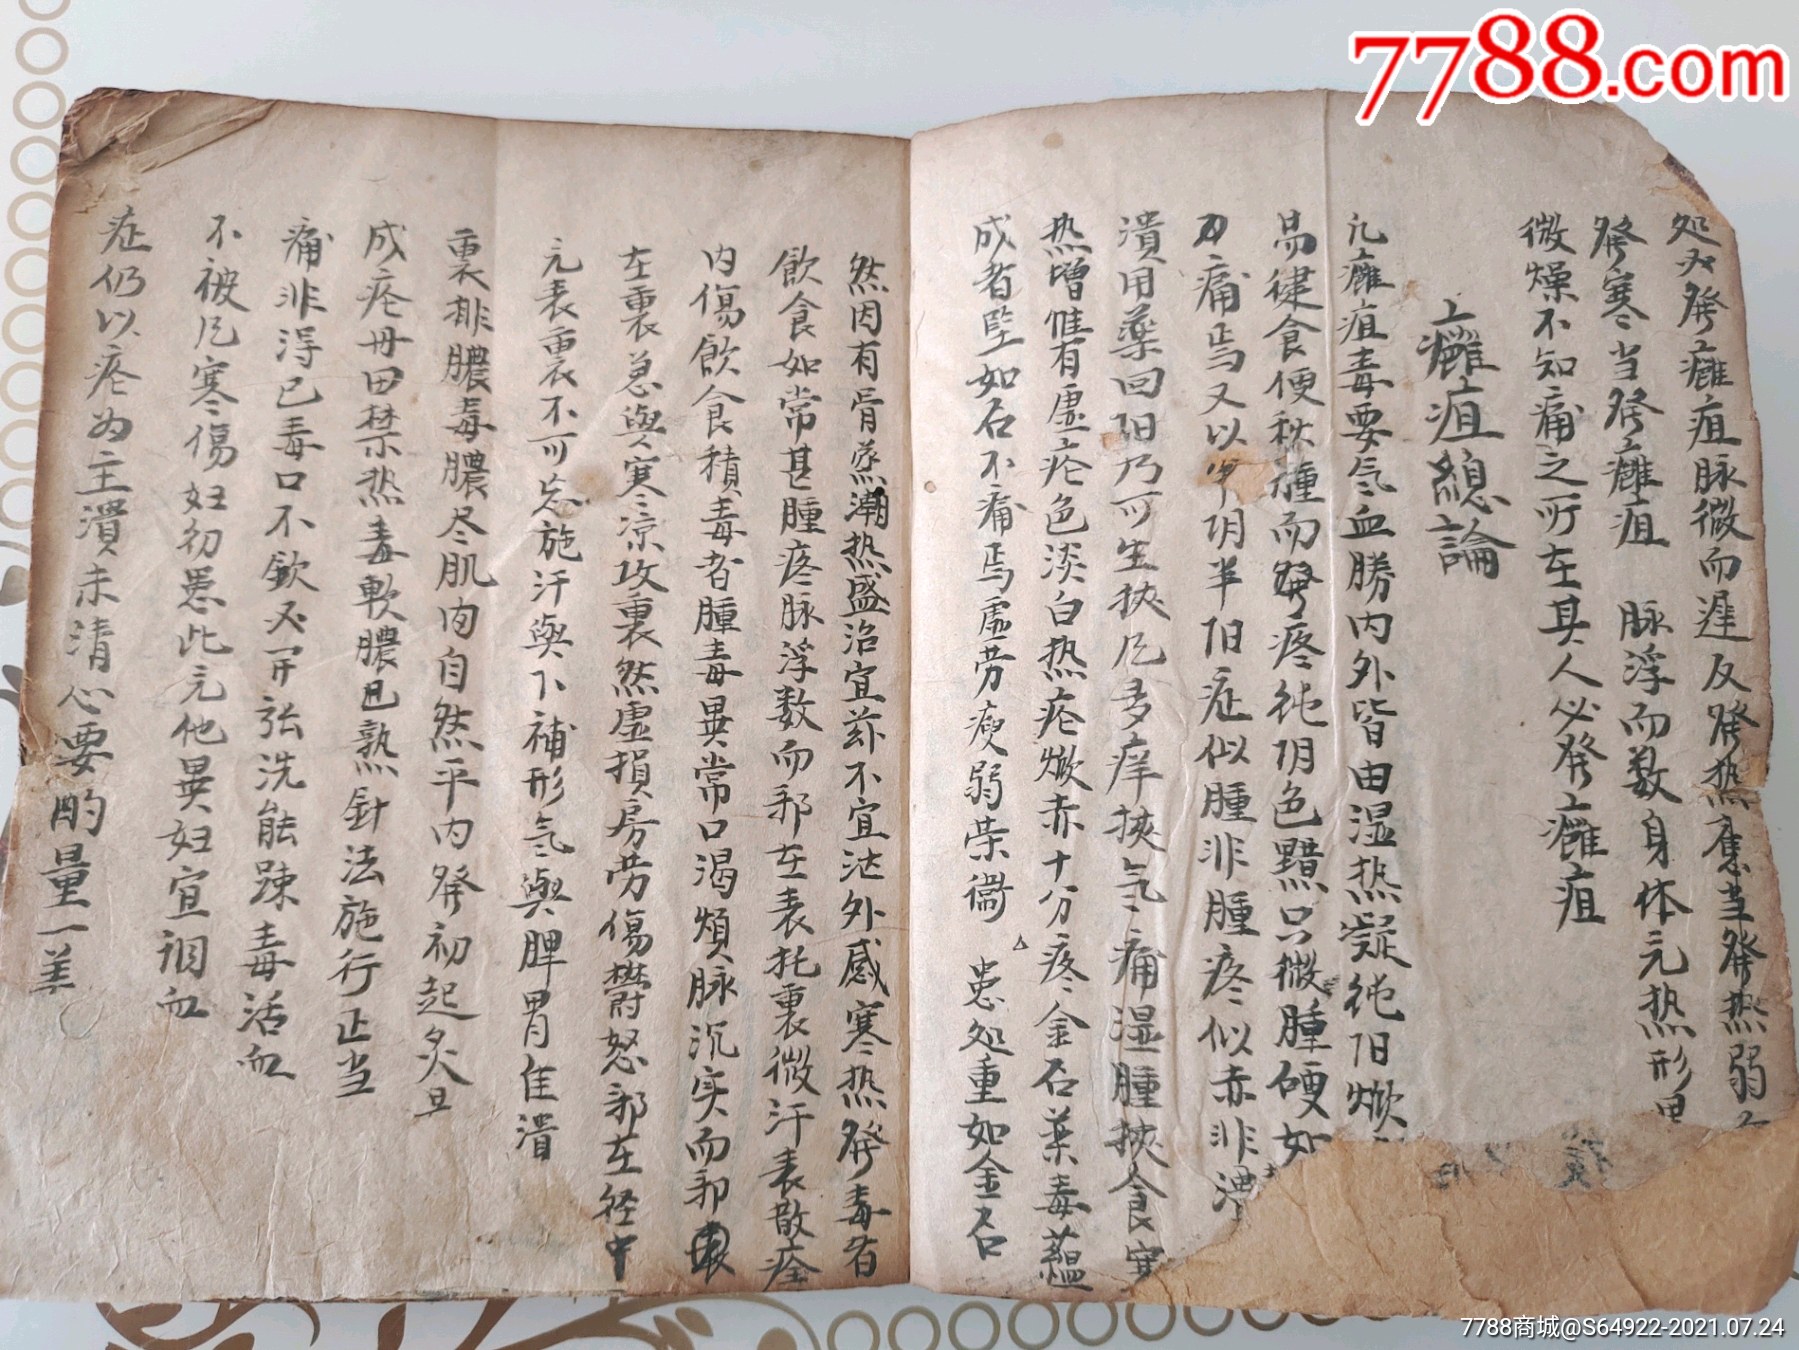 7788.com
处必發癰疽脉微而遲反發热
發寒当發癰疽 脉浮而数身体元热形
微燥不知痛之所在其人必發癰疽
上癰疽總論
凢癰疽毒要气血勝内外皆由湿热凝純阳焮
易徤食便秋腫而發疼純阴色黯只微腫硬如
不痛焉又以半阴半阳症似腫非腫疼似赤非
潰用藥回阳乃可生挾凢多痒挾气痛湿腫挾食
热增惟有虚疮色淡白热疮焮赤十分疼金石藥毒蘊
成者坚如石不痛焉虚劳瘦弱荣衞 患处重如金石
然因有骨蒸潮热盛治宜 不宜法外感寒热發毒者
飲食如常甚腫疼脉浮数而邪在表托裏微汗表散痊
内傷飲食積毒者腫毒異常口渴煩脉沉实而邪
在裏急與寒凉攻裏然虚損房劳傷欎怒邪在径中
元表裏不可忘施汗與下補形气與脾胃隹潰
裏排膿毒膿尽肌肉自然平内發初起灸且
成疮毋田禁热毒軟膿已熟針法施行正当
痛非得已毒口不歛必开張洗能踈毒活血
不被凢寒傷妇初患此元他異妇宜调血
症仍以疮为主潰未清心要酌量一羊
7788商城@S64922-2021.07.24